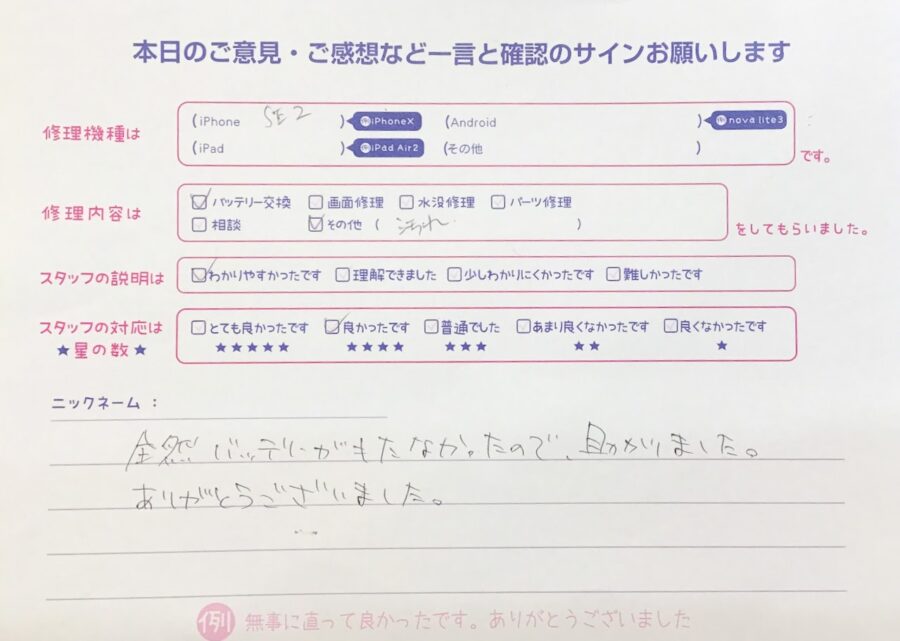 本日のご意見・ご感想など一言と確認のサインお願いします
修理機種は
(iPhone SE2 ) 例 iPhoneX (Android ) 例 nova lite3
(iPad ) 例 iPad Air2 (その他 ) です。
修理内容は
バッテリー交換 画面修理 水没修理 パーツ修理
相談 その他 ( 汚れ ) をしてもらいました。
スタッフの説明は わかりやすかったです 理解できました 少しわかりにくかったです 難しかったです
スタッフの対応は とても良かったです 良かったです 普通でした あまり良くなかったです 良くなかったです
★星の数★ ★★★★★ ★★★★ ★★★ ★★ ★
ニックネーム:
全然バッテリーがもたなかったので、助かりました。
ありがとうございました。
例 無事に直って良かったです。ありがとうございました